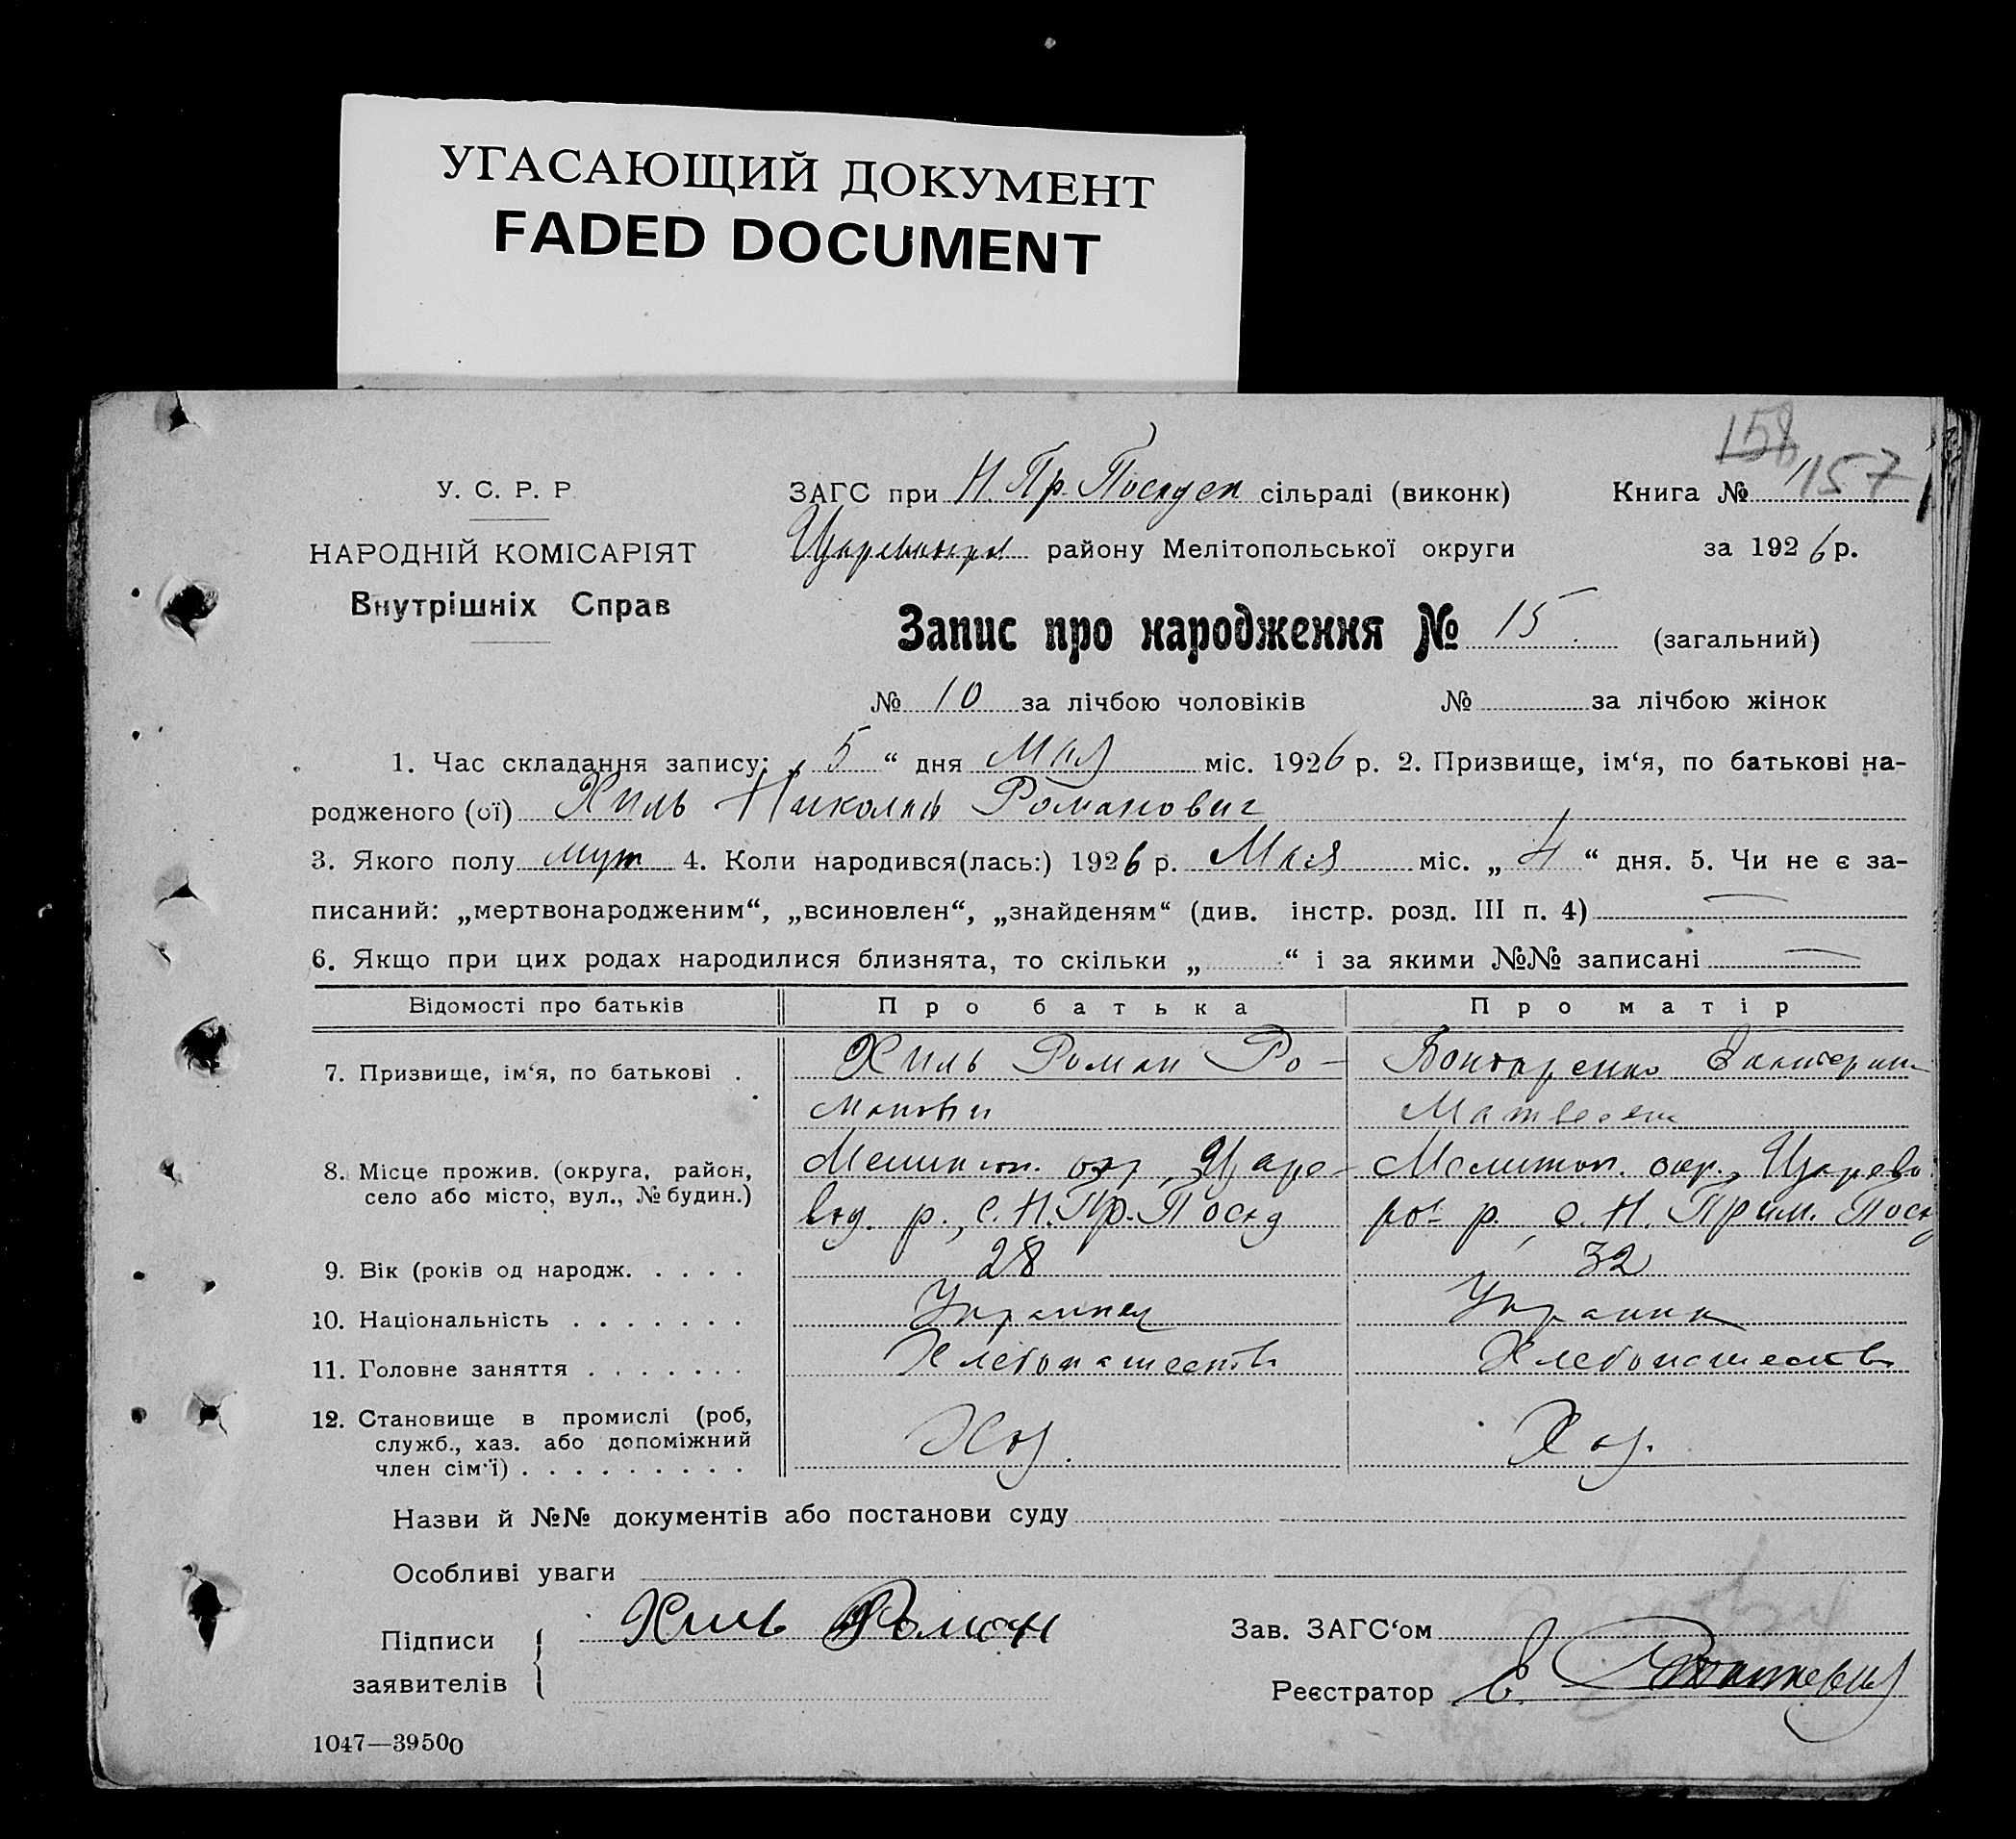 УГАСАЮЩИЙ ДОКУМЕНТ
FADED DOCUMENT
158
157
У. С. Р. Р
НАРОДНІЙ КОМІСАРІЯТ
Внутрішніх Справ
ЗАГС при Н. Пр. сільраді (виконк) Книга №
району Мелітопольської округи за 1926 р.
Запис про народження № 15. (загальний)
№ 10 за лічбою чоловіків № за лічбою жінок
1. Час складання запису: „ 5 “ дня Мая міс. 1926 р. 2. Призвище, ім‘я, по батькові на-
родженого (ої) Хиль Николай Романович
3. Якого полу муж 4. Коли народився(лась:) 1926 р. Мая міс. „ 4 “ дня. 5. Чи не є за-
писаний: „мертвонародженим“, „всиновлен“, „знайденям“ (див. інстр. розд. III п. 4) —
6. Якщо при цих родах народилися близнята, то скільки „ “ і за якими №№ записані —
Відомості про батьків Про батька Про матір
7. Призвище, ім‘я, по батькові . Хиль Роман Ро- Бондаренко Екатерина
Матвеевн
8. Місце прожив. (округа, район, Мелитоп. окр., Царе- Мелитоп. окр., Царево
село або місто, вул., № будин.) вод. р., с. Н. Пр. Посад р., с. Н. Прим. Посад
9. Вік (років од народж. . . . . 28 32
10. Національність . . . . . . . Украинец Украинка
11. Головне заняття . . . . . . . Хлебопашество Хлебопашество
12. Становище в промислі (роб,
служб., хаз. або допоміжний Хоз. Хоз.
член сім‘ї) . . . . . . . . .
Назви й №№ документів або постанови суду
Особливі уваги
Підписи Хиль Роман Зав. ЗАГС‘ом
заявителів Реєстратор
1047—39500